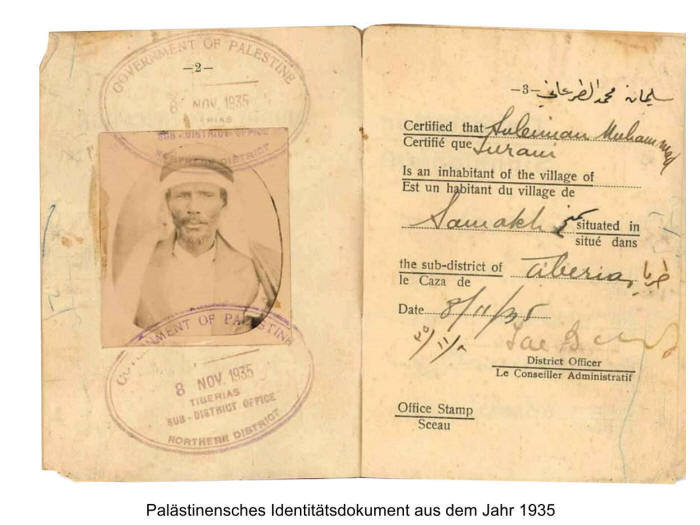 GOVERNMENT OF PALESTINE
—2—
8 NOV. 1935
TIBERIAS
SUB-DISTRICT OFFICE
NORTHERN DISTRICT
GOVERNMENT OF PALESTINE
8 NOV. 1935
TIBERIAS
SUB-DISTRICT OFFICE
NORTHERN DISTRICT
—3—
سليمان محمد
Certified that Suleiman Muhammad
Certifié que
Is an inhabitant of the village of
Est un habitant du village de
Samakh سمخ situated in
situé dans
the sub-district of Tiberias طبريا
le Caza de
Date 8/11/35
٣٥/١١/٨
District Officer
Le Conseiller Administratif
Office Stamp
Sceau
Palästinensches Identitätsdokument aus dem Jahr 1935